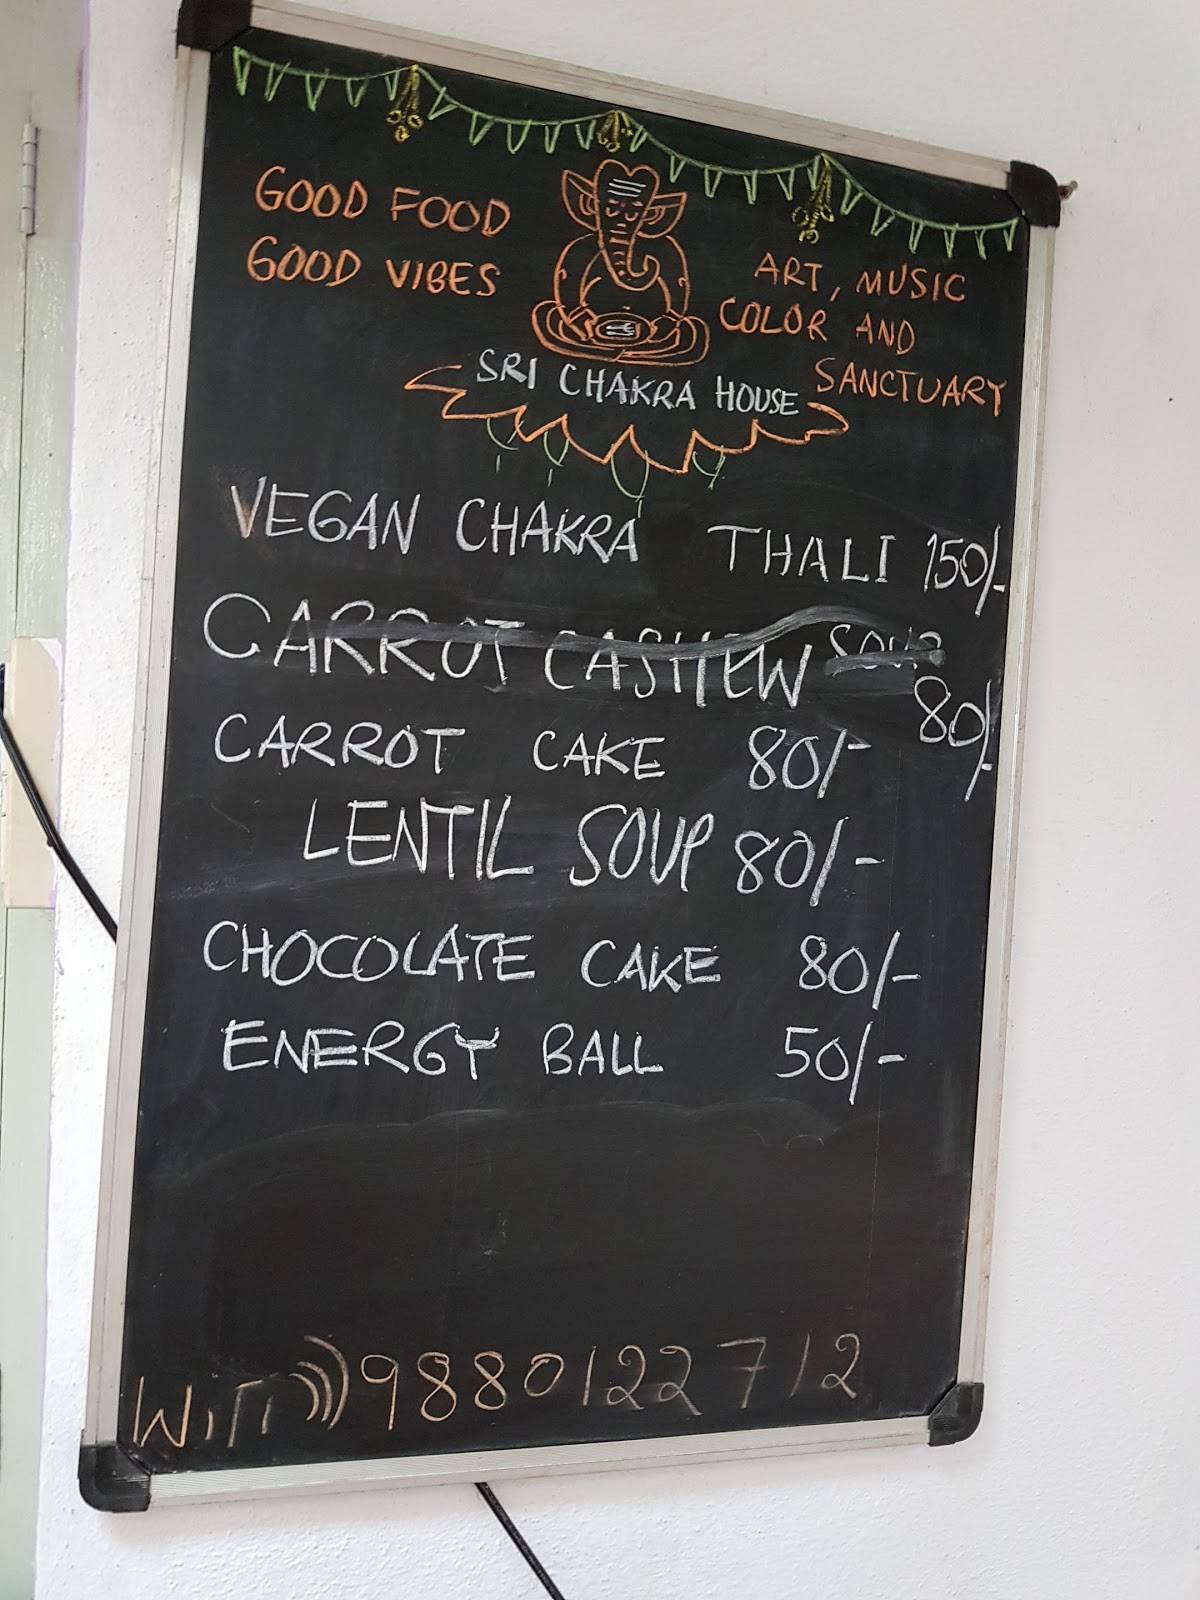 GOOD FOOD
GOOD VIBES
ART, MUSIC
COLOR AND
SANCTUARY
SRI CHAKRA HOUSE
VEGAN CHAKRA THALI 150/-
CARROT CASHEW SOUP
80/-
CARROT CAKE 80/-
LENTIL SOUP 80/-
CHOCOLATE CAKE 80/-
ENERGY BALL 50/-
WiFi 9880122712